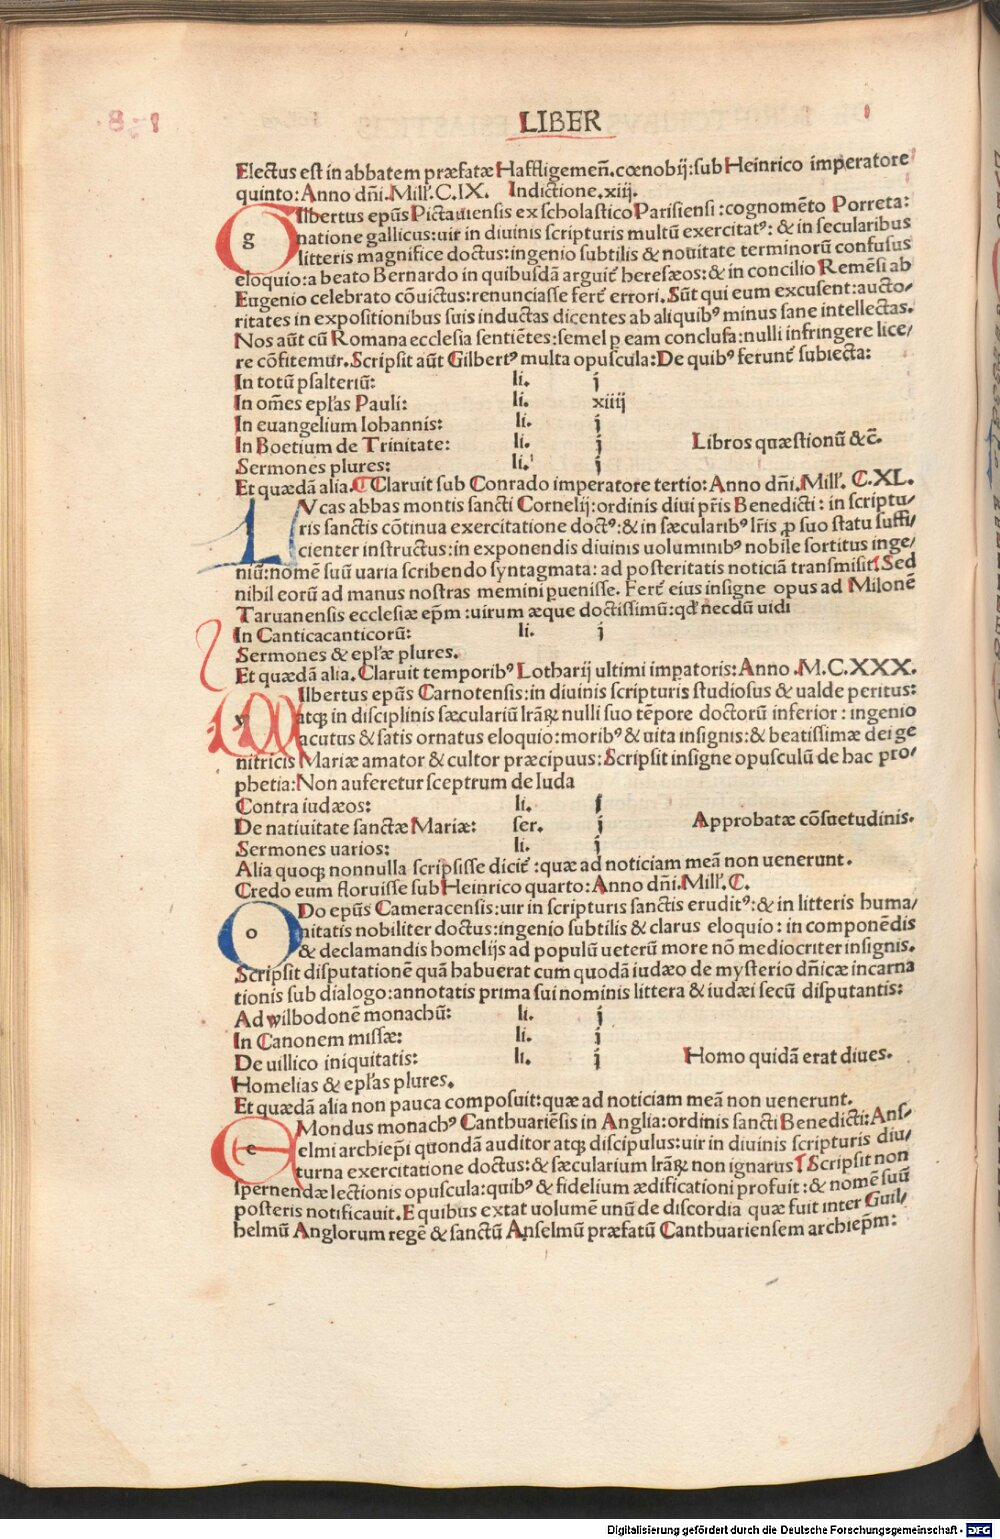 LIBER
Electus est in abbatem præfatæ Haffligemeñ. cœnobij: sub Heinrico imperatore
quinto: Anno dñi. Mill'. C. IX. Indictione. xiij.
Gilbertus epũs Pictauiensis ex scholastico Parisiensi: cognomẽto Porreta:
natione gallicus: uir in diuinis scripturis multũ exercitatꝰ: & in secularibus
litteris magnifice doctus: ingenio subtilis & nouitate terminorũ confusus
eloquio: a beato Bernardo in quibusdã arguit᷑ heresæos: & in concilio Remẽsi ab
Eugenio celebrato cõuictus: renunciasse fert᷑ errori. Sũt qui eum excusent: aucto⸗
ritates in expositionibus suis inductas dicentes ab aliquibꝰ minus sane intellectas.
Nos aũt cũ Romana ecclesia sentiẽtes: semel ꝑ eam conclusa: nulli infringere lice⸗
re cõfitemur. Scripsit aũt Gilbertꝰ multa opuscula: De quibꝰ ferunt᷑ subiecta:
In totũ psalteriũ: li. j
In om̃es epl'as Pauli: li. xiiij
In euangelium Iohannis: li. j
In Boetium de Trinitate: li. j Libros quæstionũ & c̃.
Sermones plures: li. j
Et quædã alia. ¶ Claruit sub Conrado imperatore tertio: Anno dñi. Mill'. C. XL.
LVcas abbas montis sancti Cornelij: ordinis diui p̃ris Benedicti: in scriptu⸗
ris sanctis cõtinua exercitatione doctꝰ: & in sæcularibꝰ lr̃is ꝓ suo statu suffi⸗
cienter instructus: in exponendis diuinis uoluminibꝰ nobile sortitus inge⸗
niũ: nomẽ suũ uaria scribendo syntagmata: ad posteritatis noticiã transmisit: Sed
nihil eorũ ad manus nostras memini ꝑuenisse. Fert᷑ eius insigne opus ad Milonẽ
Taruanensis ecclesiæ ep̃m: uirum æque doctissimũ: qđ necdũ uidi
In Canticacanticorũ: li. j
Sermones & epl'æ plures.
Et quædã alia. Claruit temporibꝰ Lotharij ultimi imꝑatoris: Anno. M. C. XXX.
Ilbertus epũs Carnotensis: in diuinis scripturis studiosus & ualde peritus:
atq; in disciplinis sæculariũ lr̃aꝝ nulli suo tẽpore doctorũ inferior: ingenio
acutus & satis ornatus eloquio: moribꝰ & uita insignis: & beatissimæ dei ge
nitricis Mariæ amator & cultor præcipuus: Scripsit insigne opusculũ de hac pro⸗
phetia: Non auferetur sceptrum de Iuda
Contra iudæos: li. j
De natiuitate sanctæ Mariæ: ser. j Approbatæ cõsuetudinis.
Sermones uarios: li. j
Alia quoq; nonnulla scripsisse dicit᷑: quæ ad noticiam meã non uenerunt.
Credo eum floruisse sub Heinrico quarto: Anno dñi. Mill'. C.
ODo epũs Cameracensis: uir in scripturis sanctis eruditꝰ: & in litteris huma⸗
nitatis nobiliter doctus: ingenio subtilis & clarus eloquio: in componẽdis
& declamandis homelijs ad populũ ueterũ more nõ mediocriter insignis.
Scripsit disputationẽ quã habuerat cum quodã iudæo de mysterio dñicæ incarna
tionis sub dialogo: annotatis prima sui nominis littera & iudæi secũ disputantis:
Ad wilbodonẽ monachũ: li. j
In Canonem missæ: li. j
De uillico iniquitatis: li. j Homo quidã erat diues.
Homelias & epl'as plures.
Et quædã alia non pauca composuit: quæ ad noticiam meã non uenerunt.
EMondus monachꝰ Canthuariẽsis in Anglia: ordinis sancti Benedicti: Ans⸗
elmi archiep̃i quondã auditor atq; discipulus: uir in diuinis scripturis diu⸗
turna exercitatione doctus: & sæcularium lr̃aꝝ non ignarus: Scripsit non
spernendæ lectionis opuscula: quibꝰ & fidelium ædificationi profuit: & nomẽ suũ
posteris notificauit. E quibus extat uolumẽ unũ de discordia quæ fuit inter Guil⸗
helmũ Anglorum regẽ & sanctũ Anselmũ præfatũ Canthuariensem archiep̃m:
Digitalisierung gefördert durch die Deutsche Forschungsgemeinschaft - DFG